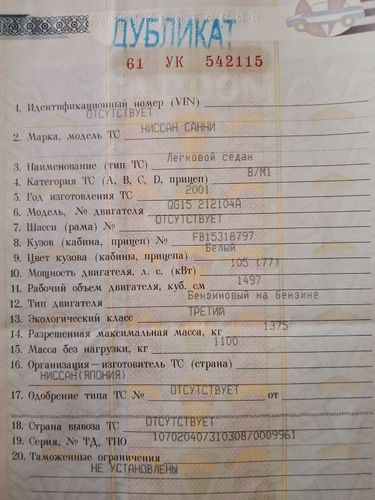 ДУБЛИКАТ
61 УК 542115
1. Идентификационный номер (VIN)
ОТСУТСТВУЕТ
2. Марка, модель ТС НИССАН САННИ
3. Наименование (тип ТС) Легковой седан
4. Категория ТС (A, B, C, D, прицеп) B/M1
5. Год изготовления ТС 2001
6. Модель, № двигателя QG15 212104A
7. Шасси (рама) № ОТСУТСТВУЕТ
8. Кузов (кабина, прицеп) № FB15318797
9. Цвет кузова (кабины, прицепа) Белый
10. Мощность двигателя, л. с. (кВт) 105 (77)
11. Рабочий объем двигателя, куб. см 1497
12. Тип двигателя Бензиновый на бензине
13. Экологический класс ТРЕТИЙ
14. Разрешенная максимальная масса, кг 1375
15. Масса без нагрузки, кг 1100
16. Организация—изготовитель ТС (страна)
НИССАН(ЯПОНИЯ)
17. Одобрение типа ТС № ОТСУТСТВУЕТ от
18. Страна вывоза ТС ОТСУТСТВУЕТ
19. Серия, № ТД, ТПО 10702040/310308/0009961
20. Таможенные ограничения
НЕ УСТАНОВЛЕНЫ